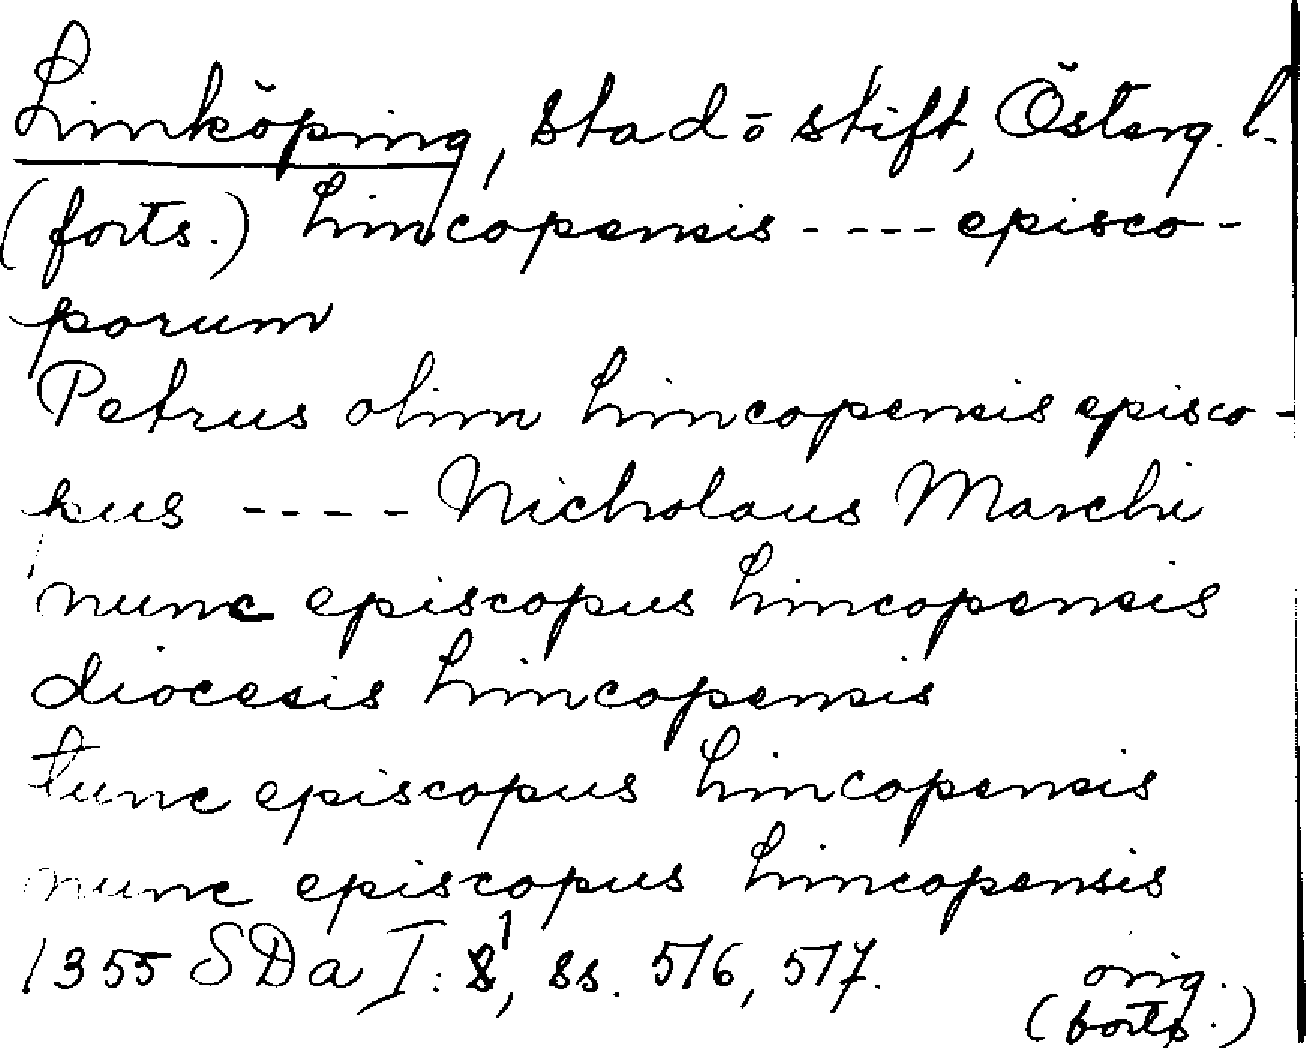 Linköping, stad o stift, Österg. l.
(forts.) Lincopensis ---- episco-
porum
Petrus olim Lincopensis episco-
pus ---- Nicholaus Marchi
nunc episcopus Lincopensis
diocesis Lincopensis
tunc episcopus Lincopensis
nunc episcopus Lincopensis
1355 SDa I: 1, ss. 516, 517. orig.
(forts.)